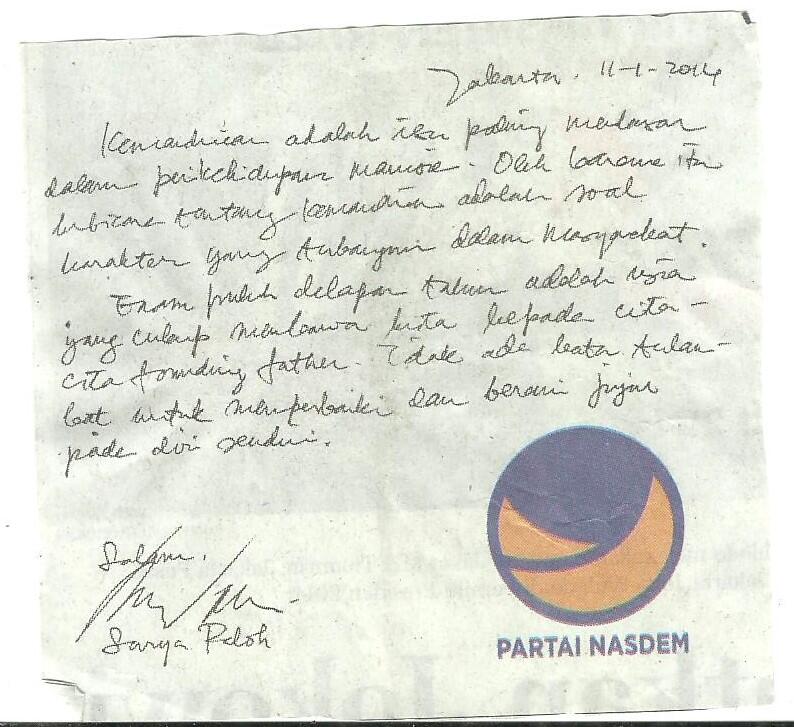 Jakarta. 11-1-2014
Kemandirian adalah isu paling mendasar
dalam perikehidupan manusia. Oleh karena itu
berbicara tentang kemandirian adalah soal
karakter yang terbangun dalam masyarakat.
Enam puluh delapan tahun adalah usia
yang cukup membawa kita kepada cita-
cita founding father. Tidak ada kata terlam-
bat untuk memperbaiki dan berani jujur
pada diri sendiri.
Salam.
Surya Paloh
PARTAI NASDEM